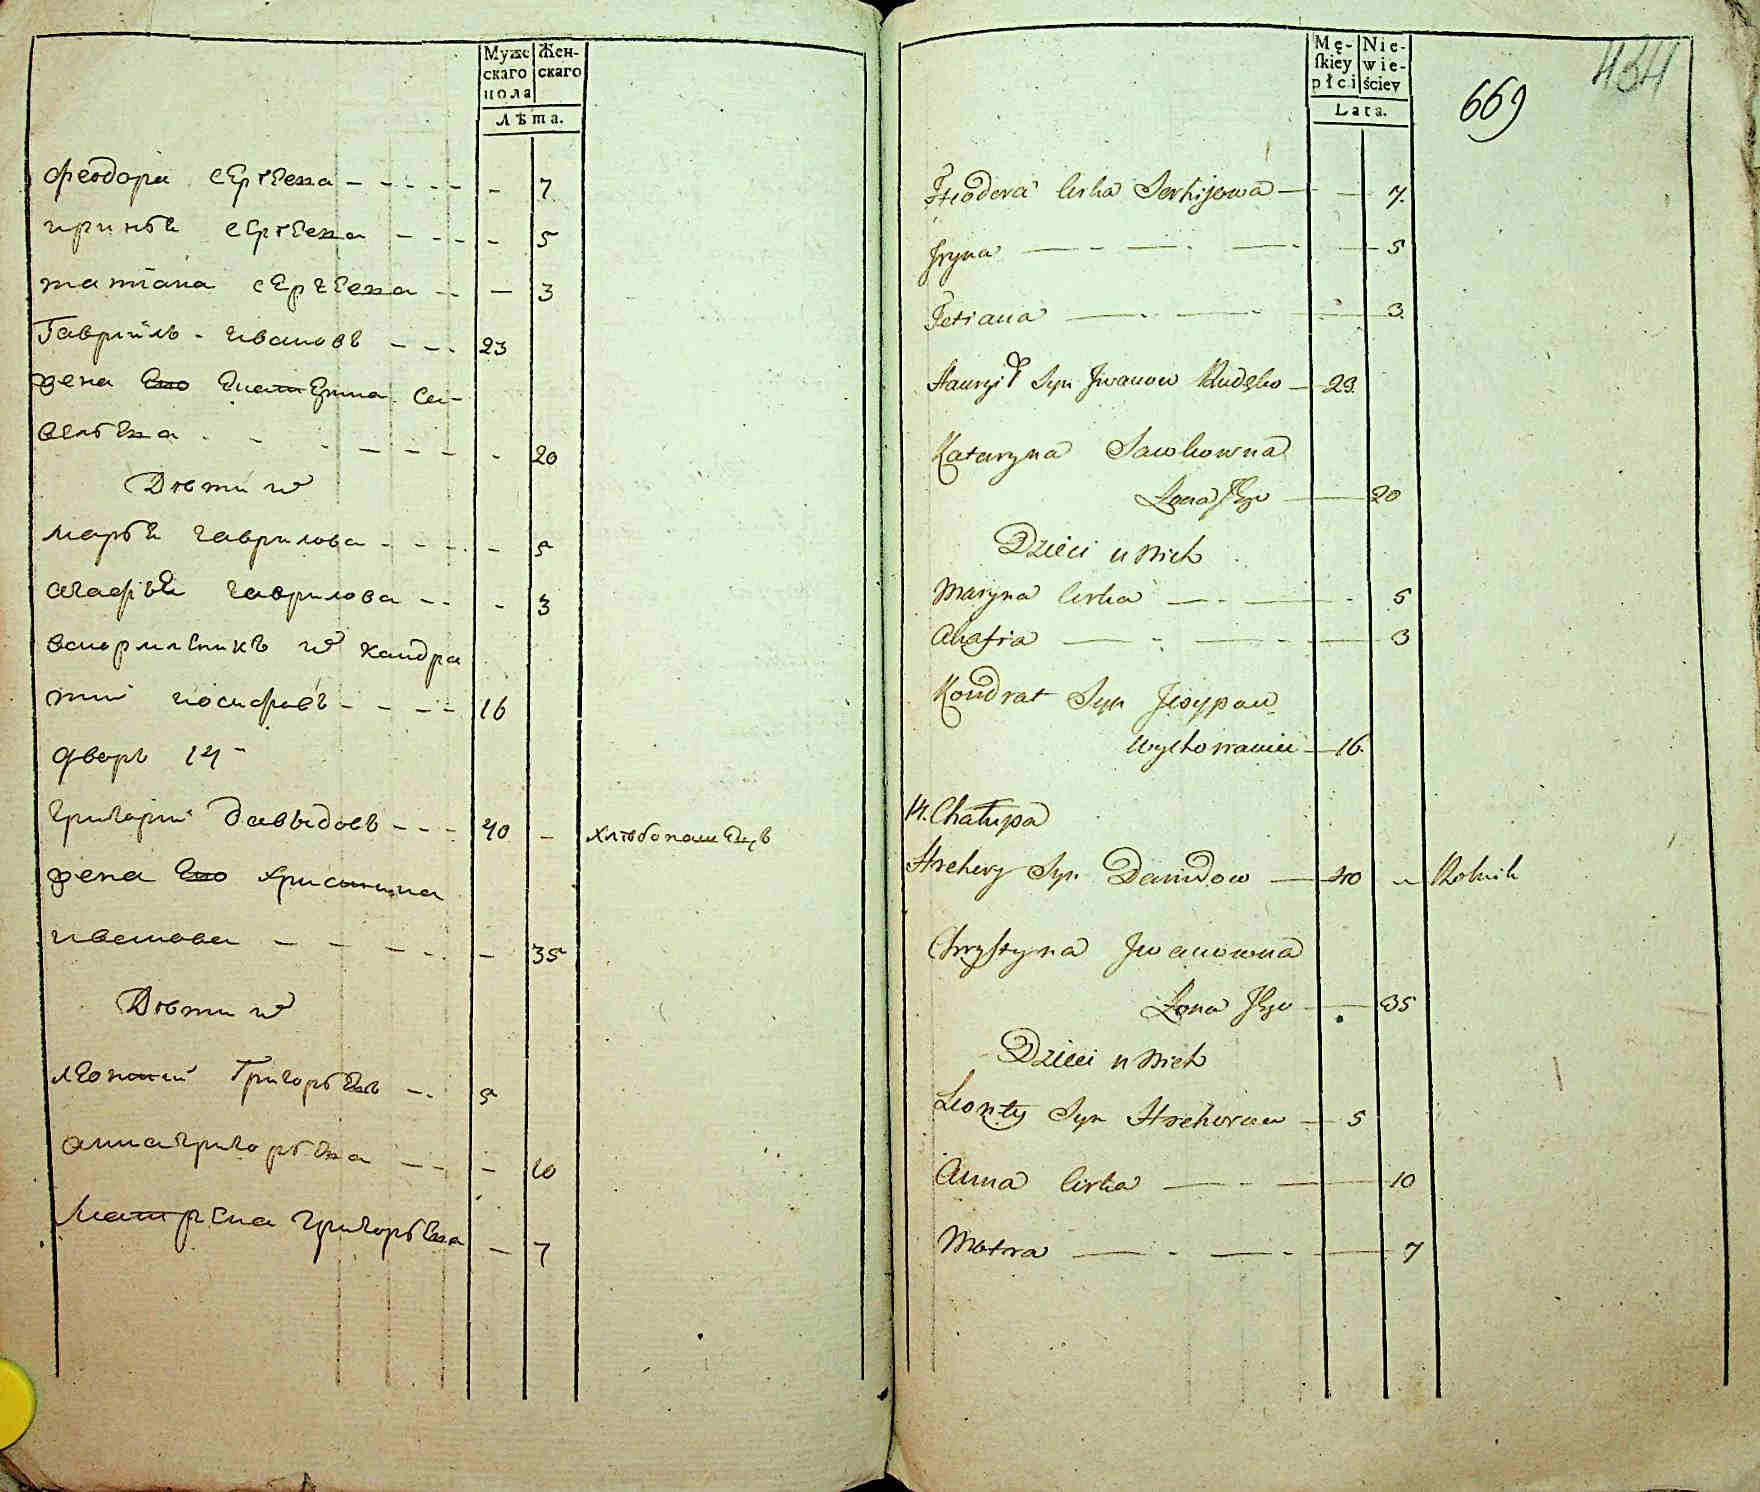 Муже Жен-
скаго скаго
пола
Лѣта.
феодора сергеева - - - - - - 7
иринѣя сергеева - - - - 5
татiана сергеева - - - 3
Гаврiилъ - ивановъ - - - 23
жена его екатерина са-
вельева - - - - - - - 20
Дѣти их
марья гаврилова - - - - - 5
агафья гаврилова - - - 3
вскормленикъ их кандра
тий иосифовъ - - - - 16
дворъ 14 -
григорий давыдовъ - - - 40 - хлѣбопашецъ
жена его христина
иванова - - - - - - 35
Дѣти их
леонтий Григорьевъ - - 5
анна григорьева - - - 10
Матрена григорьева - 7
434
669
Mę- Nie-
ſkiey wie-
płci ściey
Lata.
Fiodora Corka Serhijowa - - 7.
Jryna - - - - - 5
Tetiana - - - - - 3.
Hawryił Syn Jwanow Rudęko - 23.
Kataryna Sawkowna
Zona Jego - 20
Dzieci u nich
Maryna Corka - - - - 5
Ahafia - - - - - 3
Kondrat Syn Josypow
Wychowaniec - 16.
14. Chałupa
Hrehory Syn Dawidow - 40 - Rolnik
Chryſtyna Jwanowna
Zona Jego - - 35
Dzieci u nich
Leonty Syn Hrehorow - 5
Anna Corka - - - - 10
Motra - - - - - 7